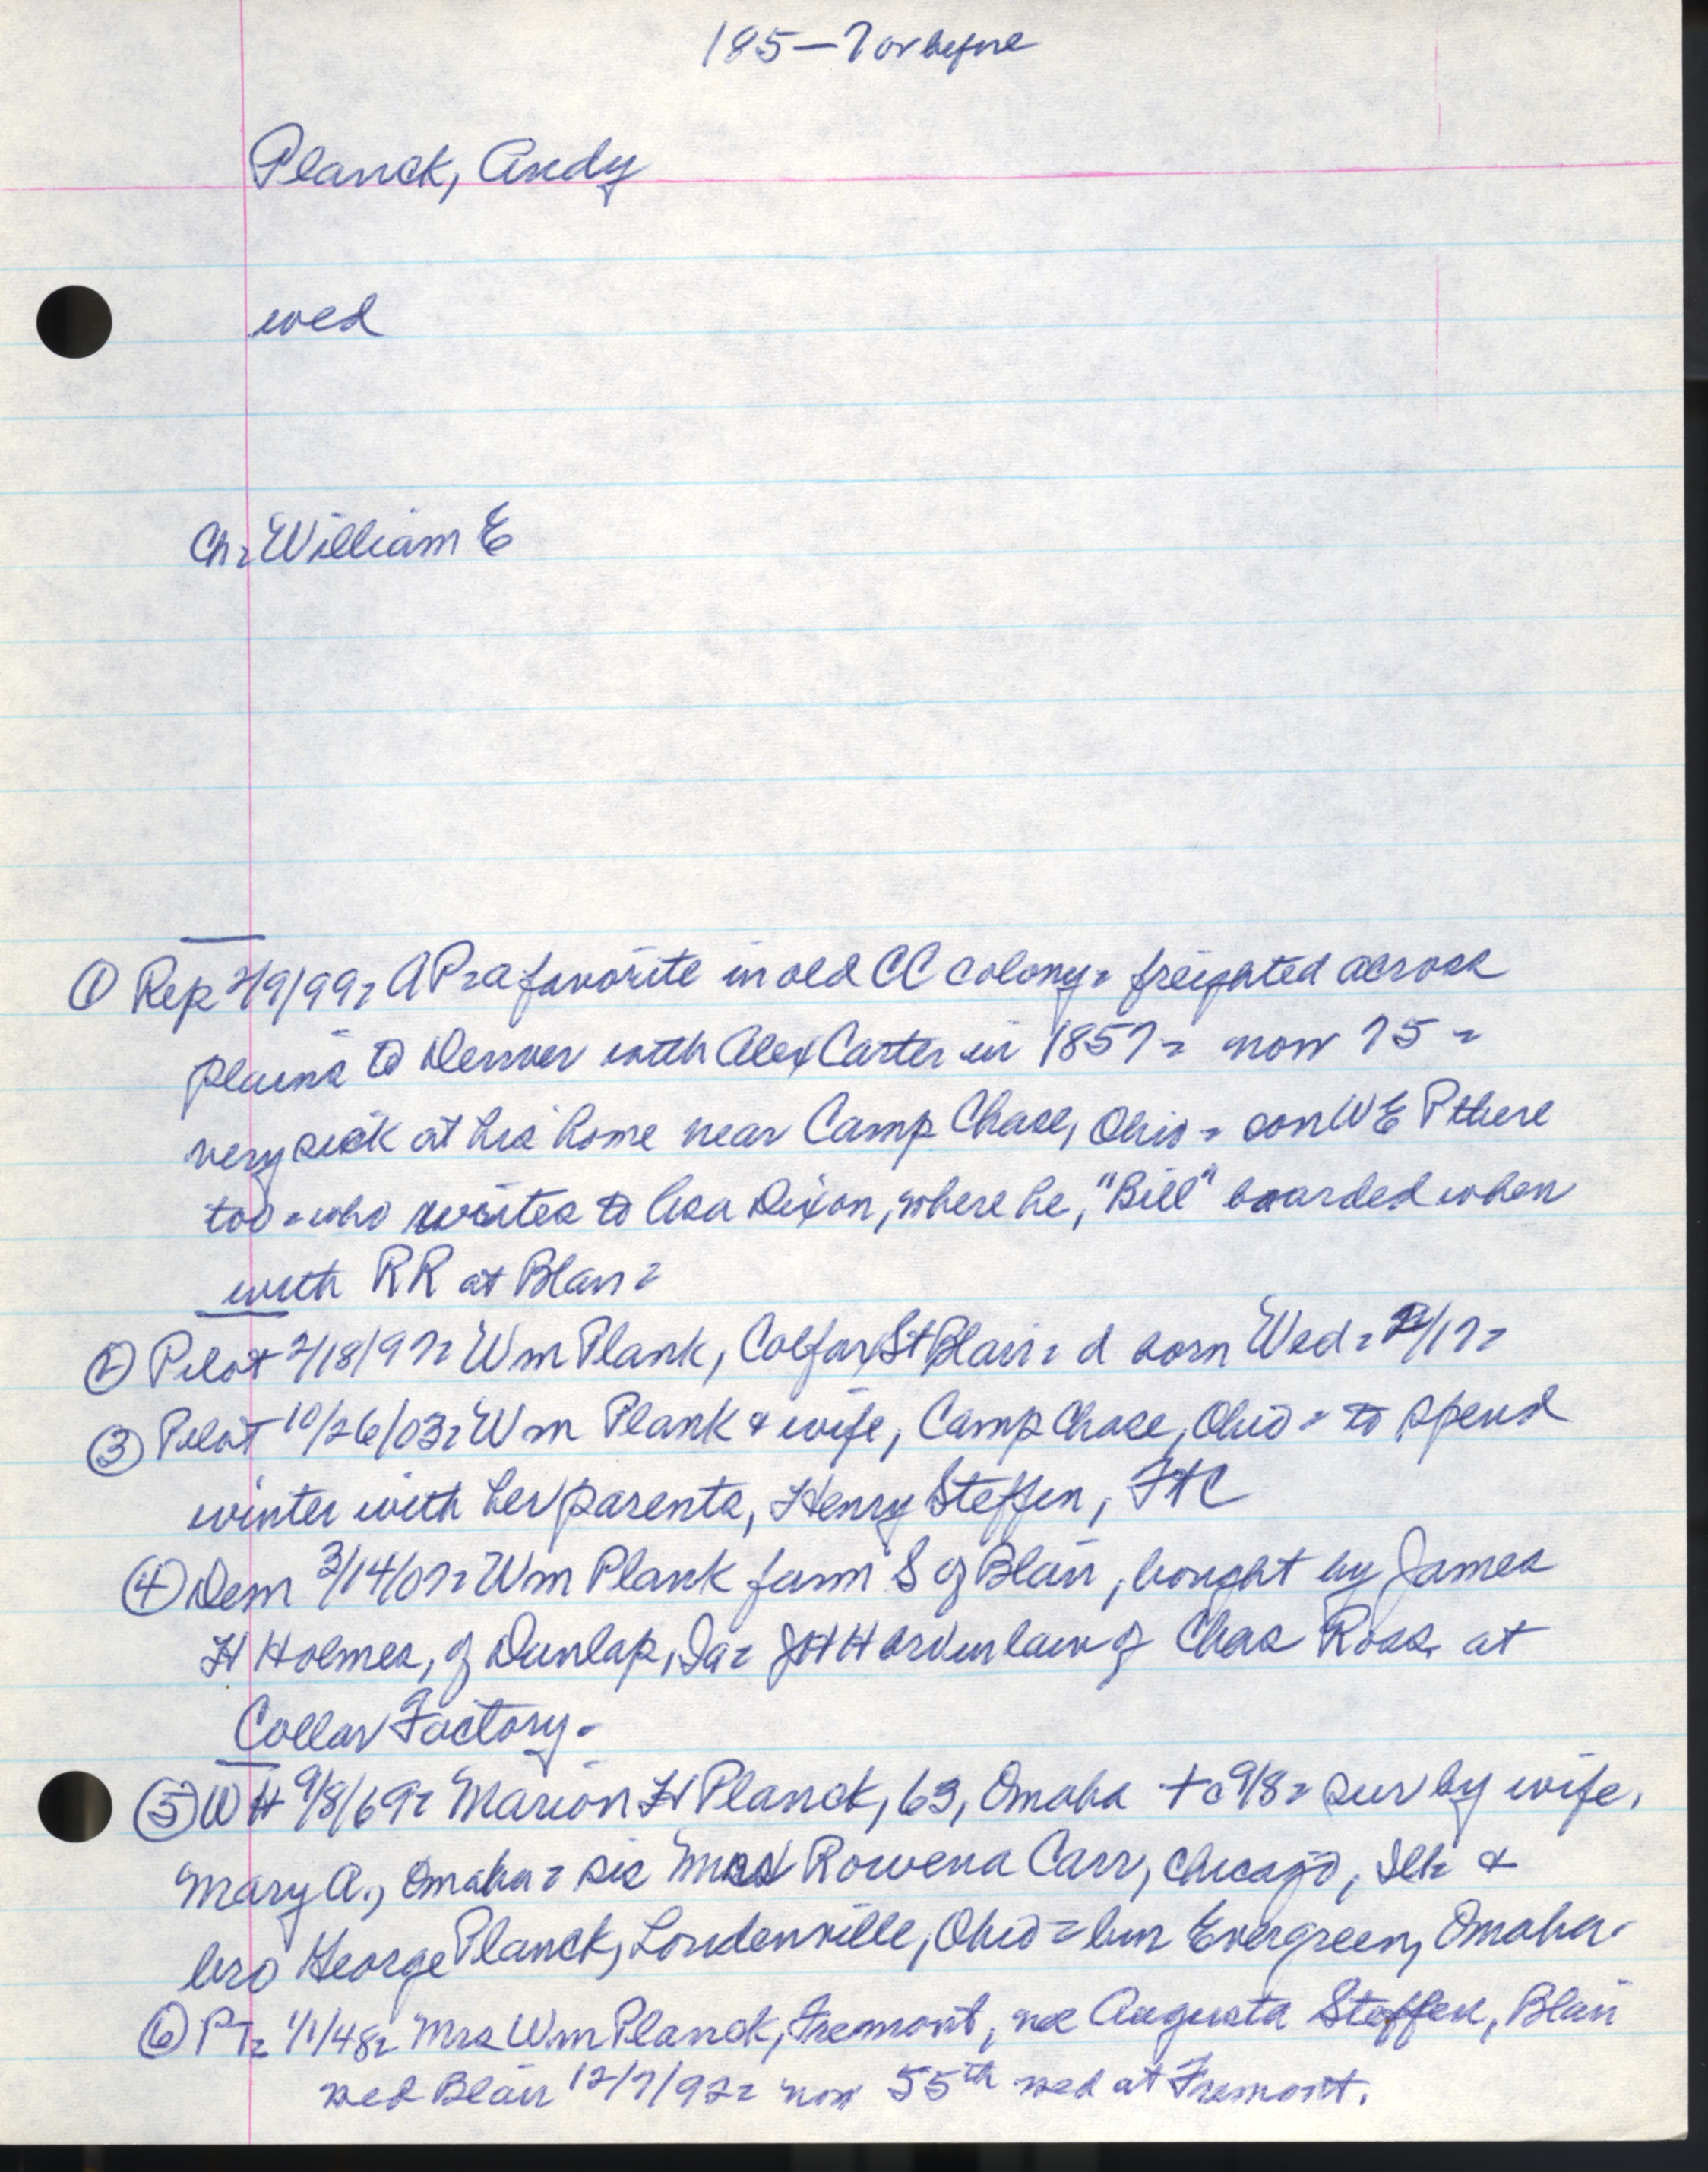 185-7 or before
Planck, Andy
wed
Ch = William E
① Rep 2/9/99 = A P = a favorite in old CC colony = freighted across
plains to Denver with Alex Carter in 1857 = now 75 =
very sick at his home near Camp Chase, Ohio = son W E P there
too = who writes to Asa Dixon, where he, "Bill" boarded when
with RR at Blair =
② Pilot 2/18/97 = Wm Plank, Colfax St Blair = d born Wed = 2/17 =
③ Pilot 10/26/03 = Wm Plank & wife, Camp Chase, Ohio = to spend
winter with her parents, Henry Steffen, FtC
④ Dem 3/14/07 = Wm Plank farm S of Blair, bought by James
H Holmes, of Dunlap, Ia = JHH broinlaw of Chas Ross at
Collar Factory.
⑤ WH 9/8/69 = Marion H Planck, 63, Omaha + c 9/8 = sur by wife,
Mary A., Omaha = sis Mrs Rowena Carr, Chicago, Ill = &
bro George Planck, Loudenville, Ohio = bur Evergreen, Omaha.
⑥ PT = 1/1/48 = Mrs Wm Planck, Fremont, nee Augusta Steffen, Blair
wed Blair 12/7/92 = now 55th wed at Fremont.